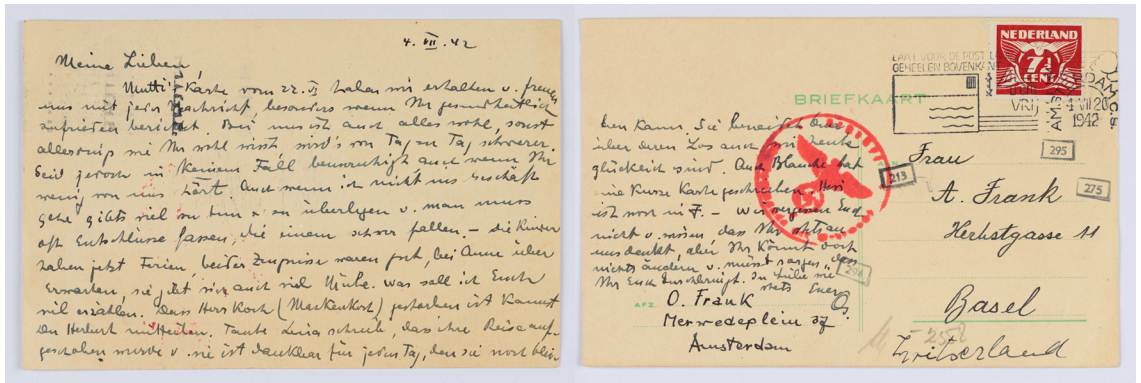 4. VII. 42
Meine Lieben
Mutti's Karte vom 22. VI haben wir erhalten u. freuen
uns mit jeder Nachricht, besonders wenn Ihr gesundheitlich
zufrieden berichtet. Bei uns ist auch alles wohl, sonst
allerdings wie Ihr wohl wisst, wird's von Tag zu Tag schwerer.
Seid jedoch in keinem Fall beunruhigt auch wenn Ihr
wenig von uns hört. Auch wenn ich nicht ins Geschäft
gehe gibts viel zu tun u. zu überlegen u. man muss
oft Entschlüsse fassen, die einem schwer fallen. – die Kinder
haben jetzt Ferien, beider Zeugnisse waren gut, bei Anne über
Erwarten, sie gibt sich auch viel Mühe. Was soll ich Euch
viel erzählen. Dass Herr Koch gestorben ist kannst
Du Herbert mitteilen. Tante schreibt, dass ihre Reise auf-
geschoben wurde u. sie ist dankbar für jeden Tag, den sie noch blei-
ben kann. Sie
über deren Los auch wir nicht
glücklich sind. Auch Blanche hat
eine kurze Karte geschrieben.
ist noch in F. – Wir vergessen Euch
nicht u. wissen dass Ihr
uns denkt, aber Ihr könnt doch
nichts ändern u. müsst sorgen, dass
Ihr Euch durchbringt. In Liebe wie
stets Euer
O.
BRIEFKAART
AFZ.
O. Frank
Merwedeplein 37
Amsterdam
LAAT VOOR DE POST
GEHEELEN BOVENKANT
VRIJ
AMSTERDAM C.S.
4 VII 20
1942
NEDERLAND
7½
CENT
295
213
275
Frau
A. Frank
Herbstgasse 11
Basel
Zwitserland